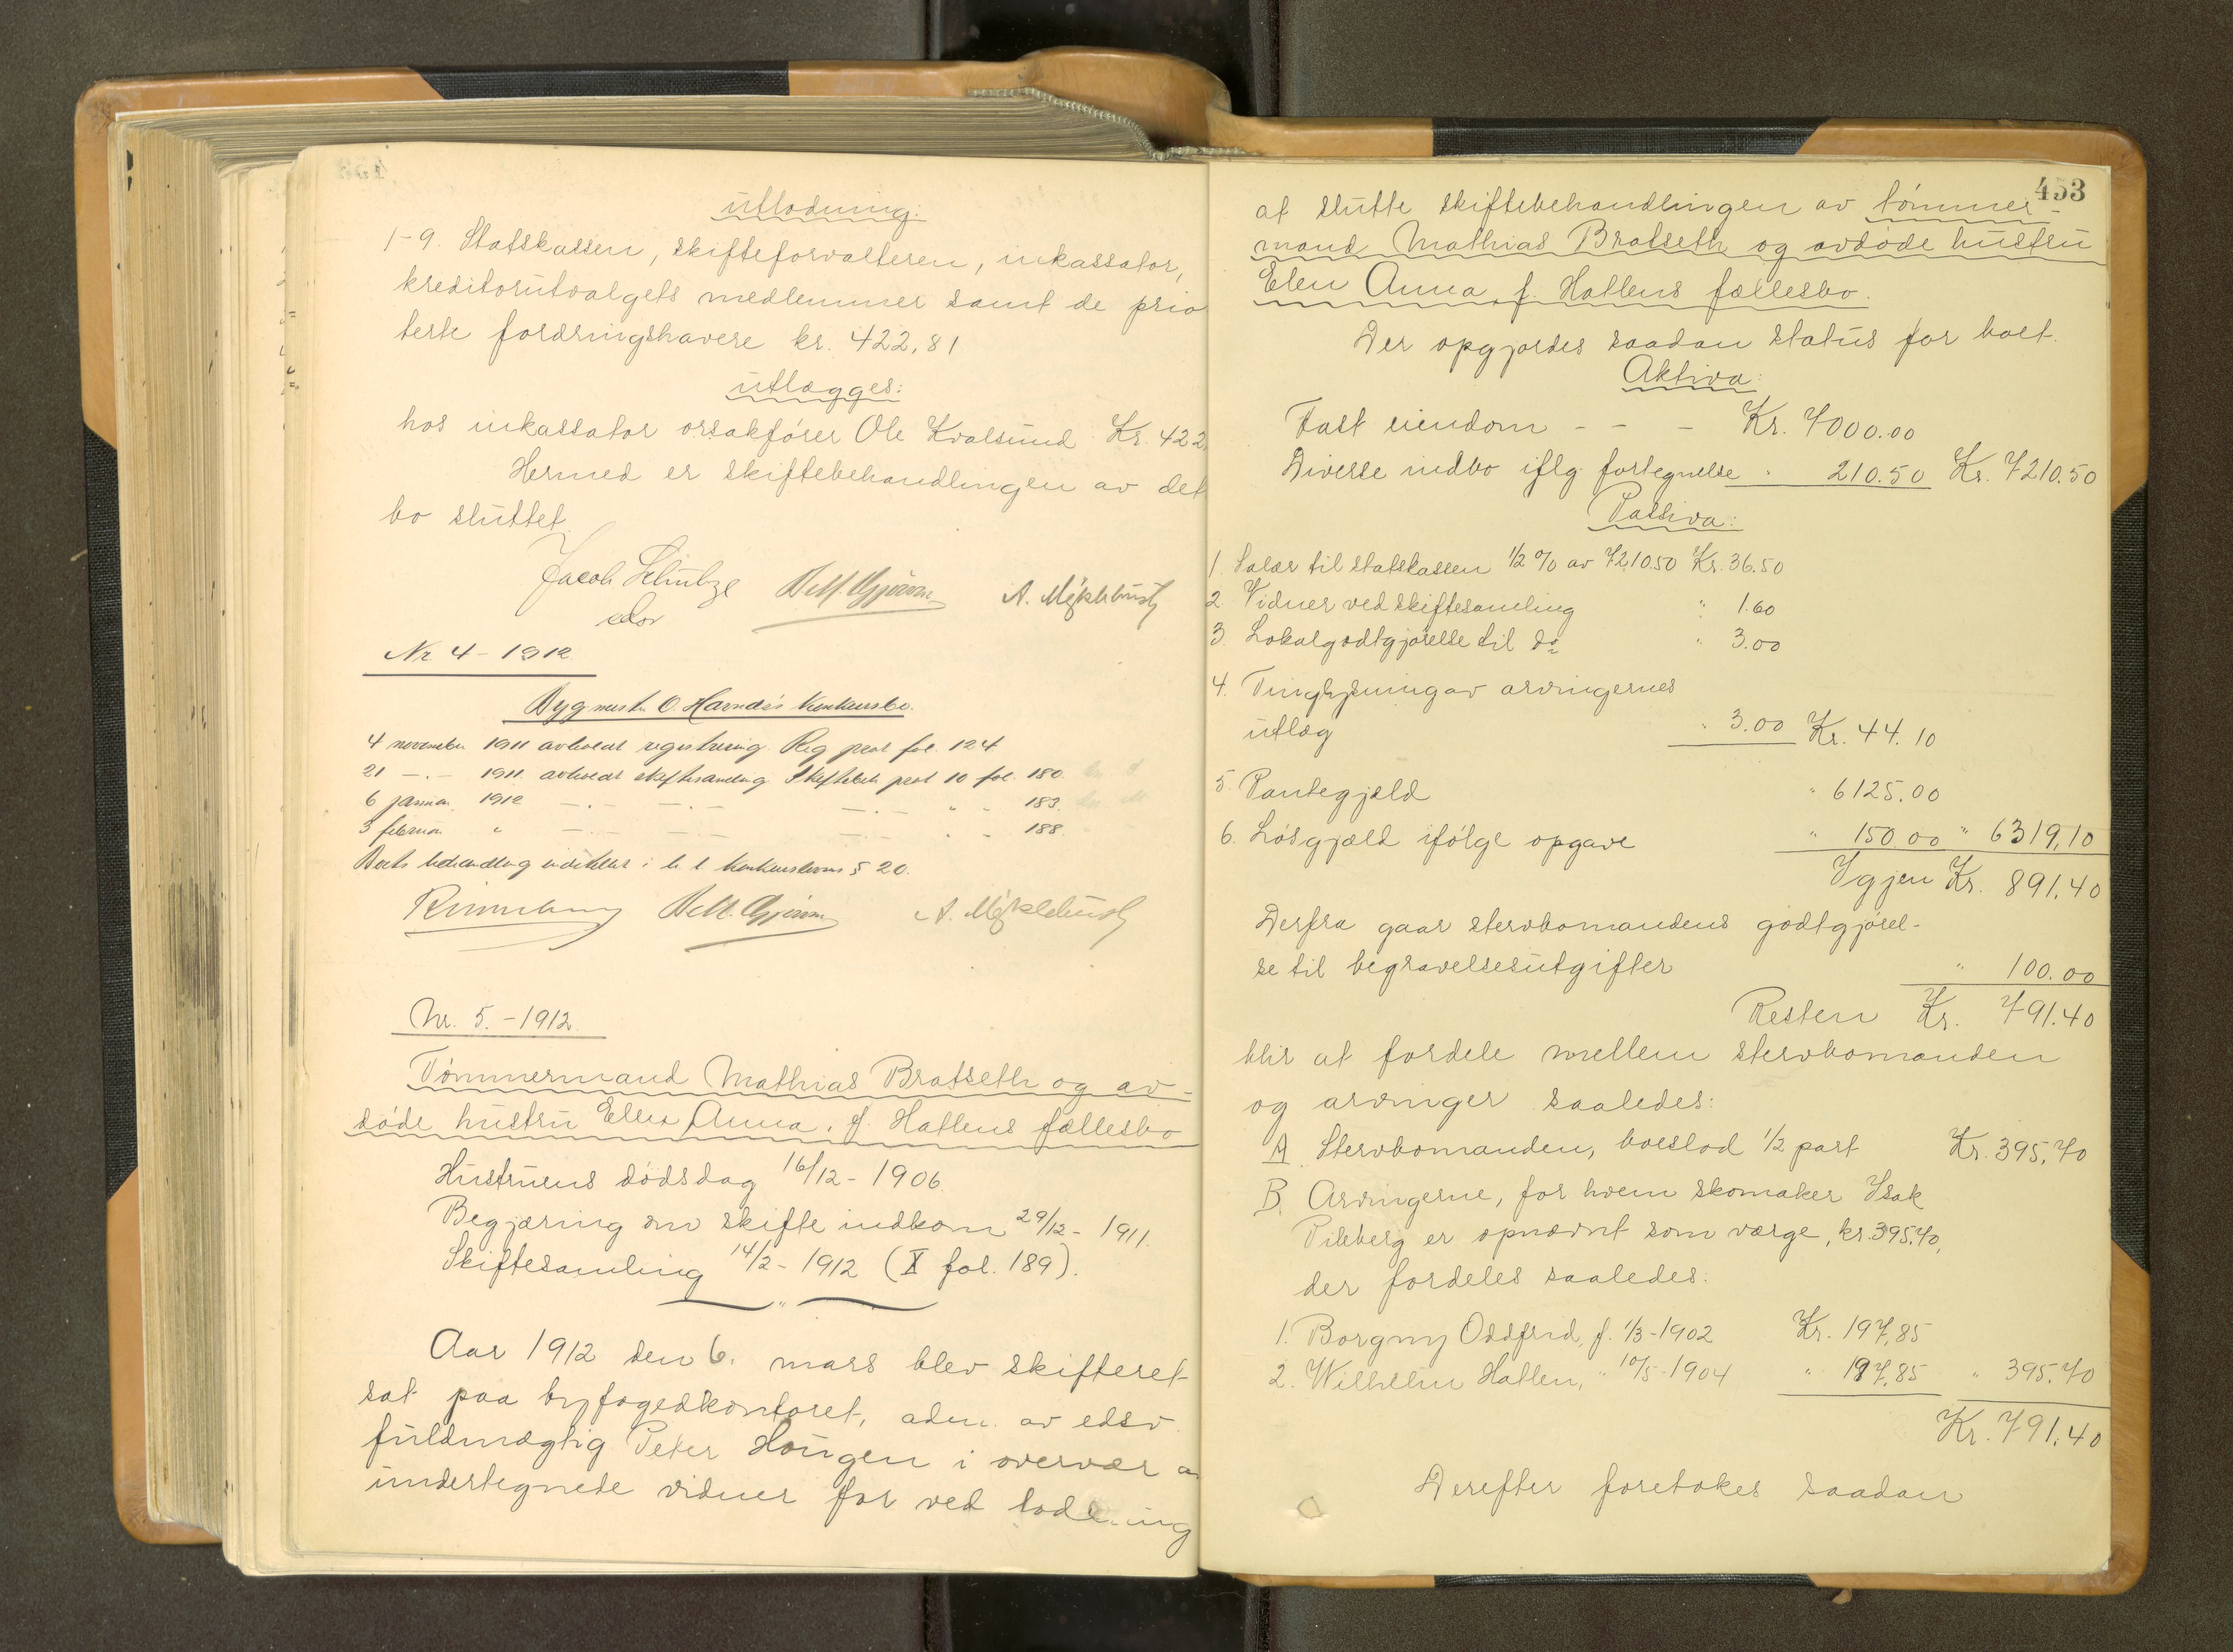 utlodning:
1-9. Statskassen, skifteforvalteren, inkassator,
kreditorutvalgets medlemmer samt de prio
terte fordringshavere kr. 422,81
utlægges:
hos inkassator orsakfører Ole Kvalsund Kr. 422
Hermed er skiftebehandlingen av det
bo sluttet.
Jacob Schultze A. Mýklebust
Nr 4 - 1912
Bygmest. O. Havnæs konkursbo.
4 november 1911 avholdt registrering. Reg prot fol. 124
21 -.- 1911. avholdt skiftesamling Skifteb prot 10 fol. 180.
6 januar 1912 -.- -.- -.- " - 183.
3 februar " -.- -.- -.- " - 188.
Boets behandling indstillet i h. t. konkurslovens § 20.
A. Mýklebust
Nr. 5. - 1912.
Tømmermand Mathias Bratseth og av-
døde hustru Ellen Anna, f. Hatlens fællesbo
Hustruens dødsdag 16/12 - 1906.
Begjæring om skifte indkom 29/12 - 1911.
Skiftesamling 14/2 - 1912 (X fol. 189).
Aar 1912 den 6. mars blev skifteret
sat paa byfogedkontoret, adm. av edsv.
fuldmægtig Peter Hougen i overvær a
undertegnede vidner for ved lodning
453
at slutte skiftebehandlingen av tømmer-
mand Mathias Bratseth og avdøde hustru
Elen Anna, f. Hatlens fællesbo.
Der opgjordes saadan status for boet.
Aktiva:
Fast eiendom - - - Kr. 7000.00
Diverse indbo iflg fortegnelse " 210.50 Kr. 7210.50
Passiva:
1. Salær til statskassen 1/2 % av 7210.50 Kr. 36.50
2. Vidner ved skiftesamling " 1.60
3. Lokalgodtgjørelse til do " 3.00
4. Tinglysning av arvingernes
utlæg " 3.00 Kr. 44.10
5. Pantegjæld " 6125.00
6. Løsgjæld ifølge opgave " 150.00 " 6319,10
Igjen Kr. 891.40
Derfra gaar stervbomandens godtgjørel-
se til begravelsesutgifter " 100.00
Resten Kr. 791.40
blir at fordele mellem stervbomanden
og arvinger saaledes:
A. Stervbomanden, boeslod 1/2 part Kr. 395,70
B. Arvingerne, for hvem skomaker Isak
Pilskberg er opnævnt som værge, kr. 395.70,
der fordeles saaledes:
1. Borgny Oddfrid, f. 1/3 - 1902 Kr. 197,85
2. Wilhelm Hatlen, " 10/5 - 1904 " 197,85 " 395.70
Kr. 791.40
Derefter foretokes saadan